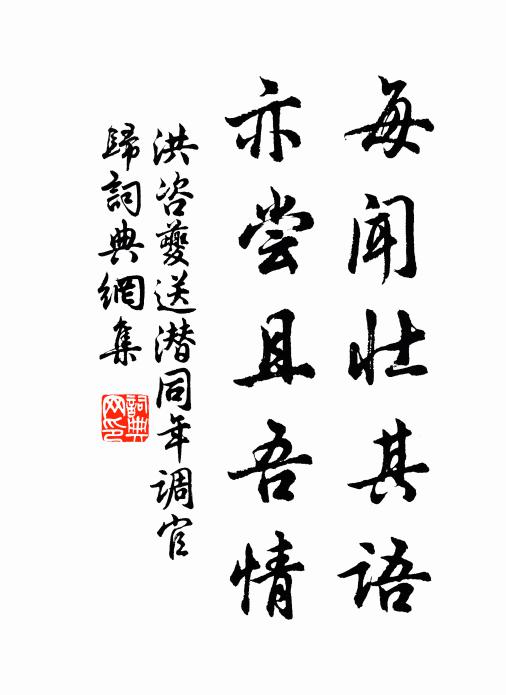 每闻壮其语
亦尝且吾情
洪咨夔送潜同年调官
归词典网集
詞典
网印